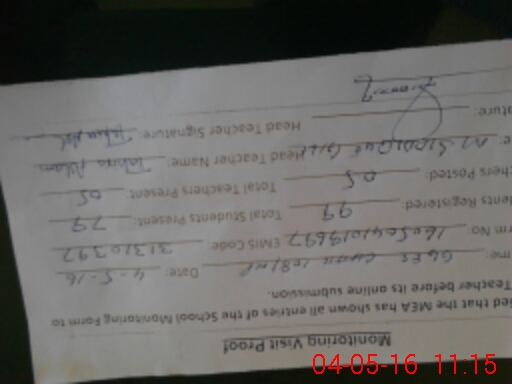 Monitoring Visit Proof
ied that the MEA has shown all entries of the School Monitoring Form to
Teacher before its online submission.
me: GGES Chak 108/NP Date: 4-5-16
rm No: EMIS Code: 31310397
dents Registered: 99 Total Students Present: 79
chers Posted: 05 Total Teachers Present: 05
e: Head Teacher Name: Tahira
ature: Head Teacher Signature:
04-05-16 11:15